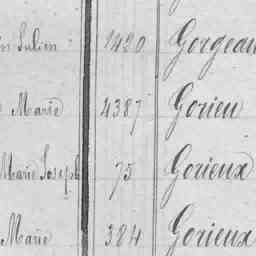 Julien 1420 Gorgeau
Marie 4387 Gorieu
Marie Joseph 75 Gorieux
Marie 384 Gorieux